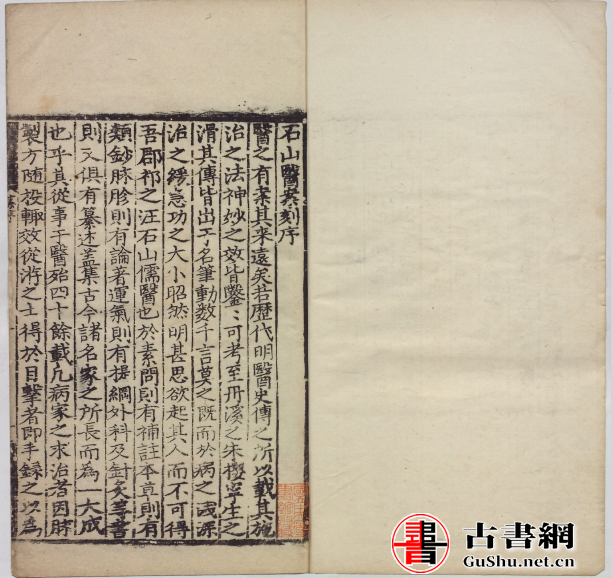 石山醫案刻序
醫之有案其來遠矣若歷代明醫史傳之所以載其施
治之法神妙之效皆鑿〻可考至丹溪之朱櫻寧生之
滑其傳皆出于名筆動數千言莫之既而於病之淺深
治之緩急功之大小昭然明甚思欲起其人而不可得
吾郡祁之汪石山儒醫也於素問則有補註本草則有
類鈔脉胗則有論著運氣則有提綱外科及針灸等書
則又俱有纂述盖集古今諸名家之所長而為一大成
也乎其從事于醫殆四十餘載凡病家之求治者因脉
製方随投輙效從遊之士得於目擊者即手錄之以為
書
古書網
GuShu.net.cn